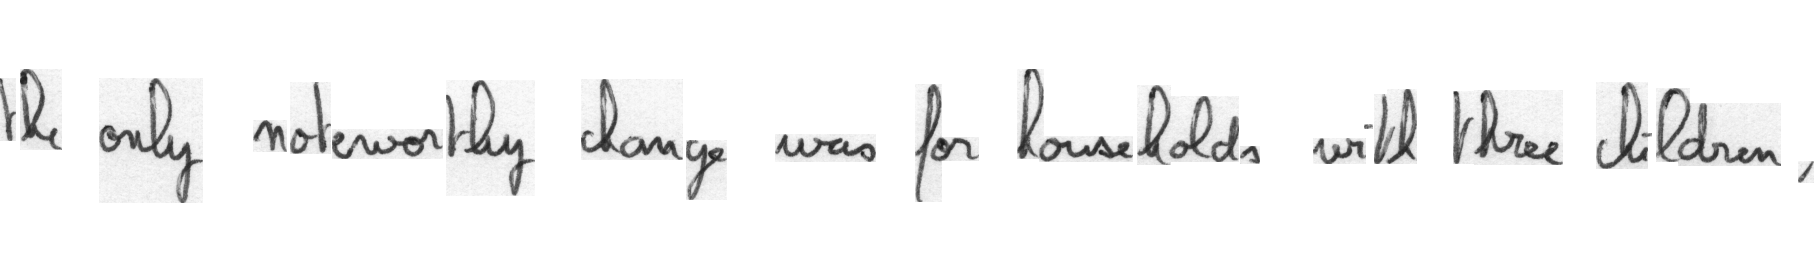 the only noteworthy change was for households with three children,